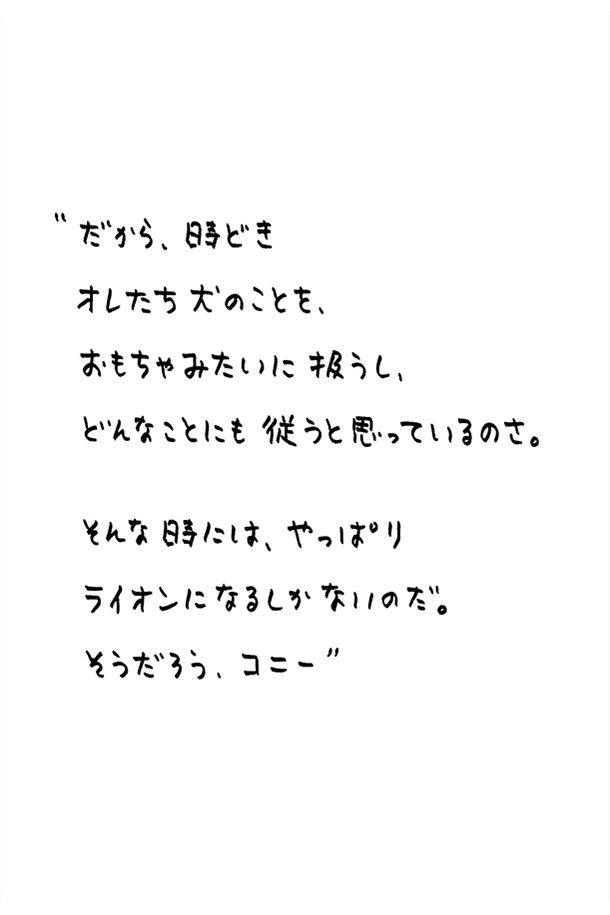 "だから、時どき
オレたち犬のことを、
おもちゃみたいに扱うし、
どんなことにも従うと思っているのさ。
そんな時には、やっぱり
ライオンになるしかないのだ。
そうだろう、コニー"